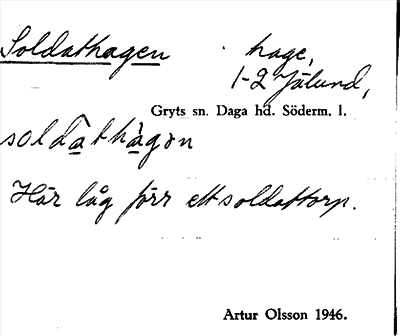 Soldathagen hage,
1-2 Jälund,
Gryts sn. Daga hd. Söderm. l.
soldàthàgən
Här låg förr ett soldattorp.
Artur Olsson 1946.